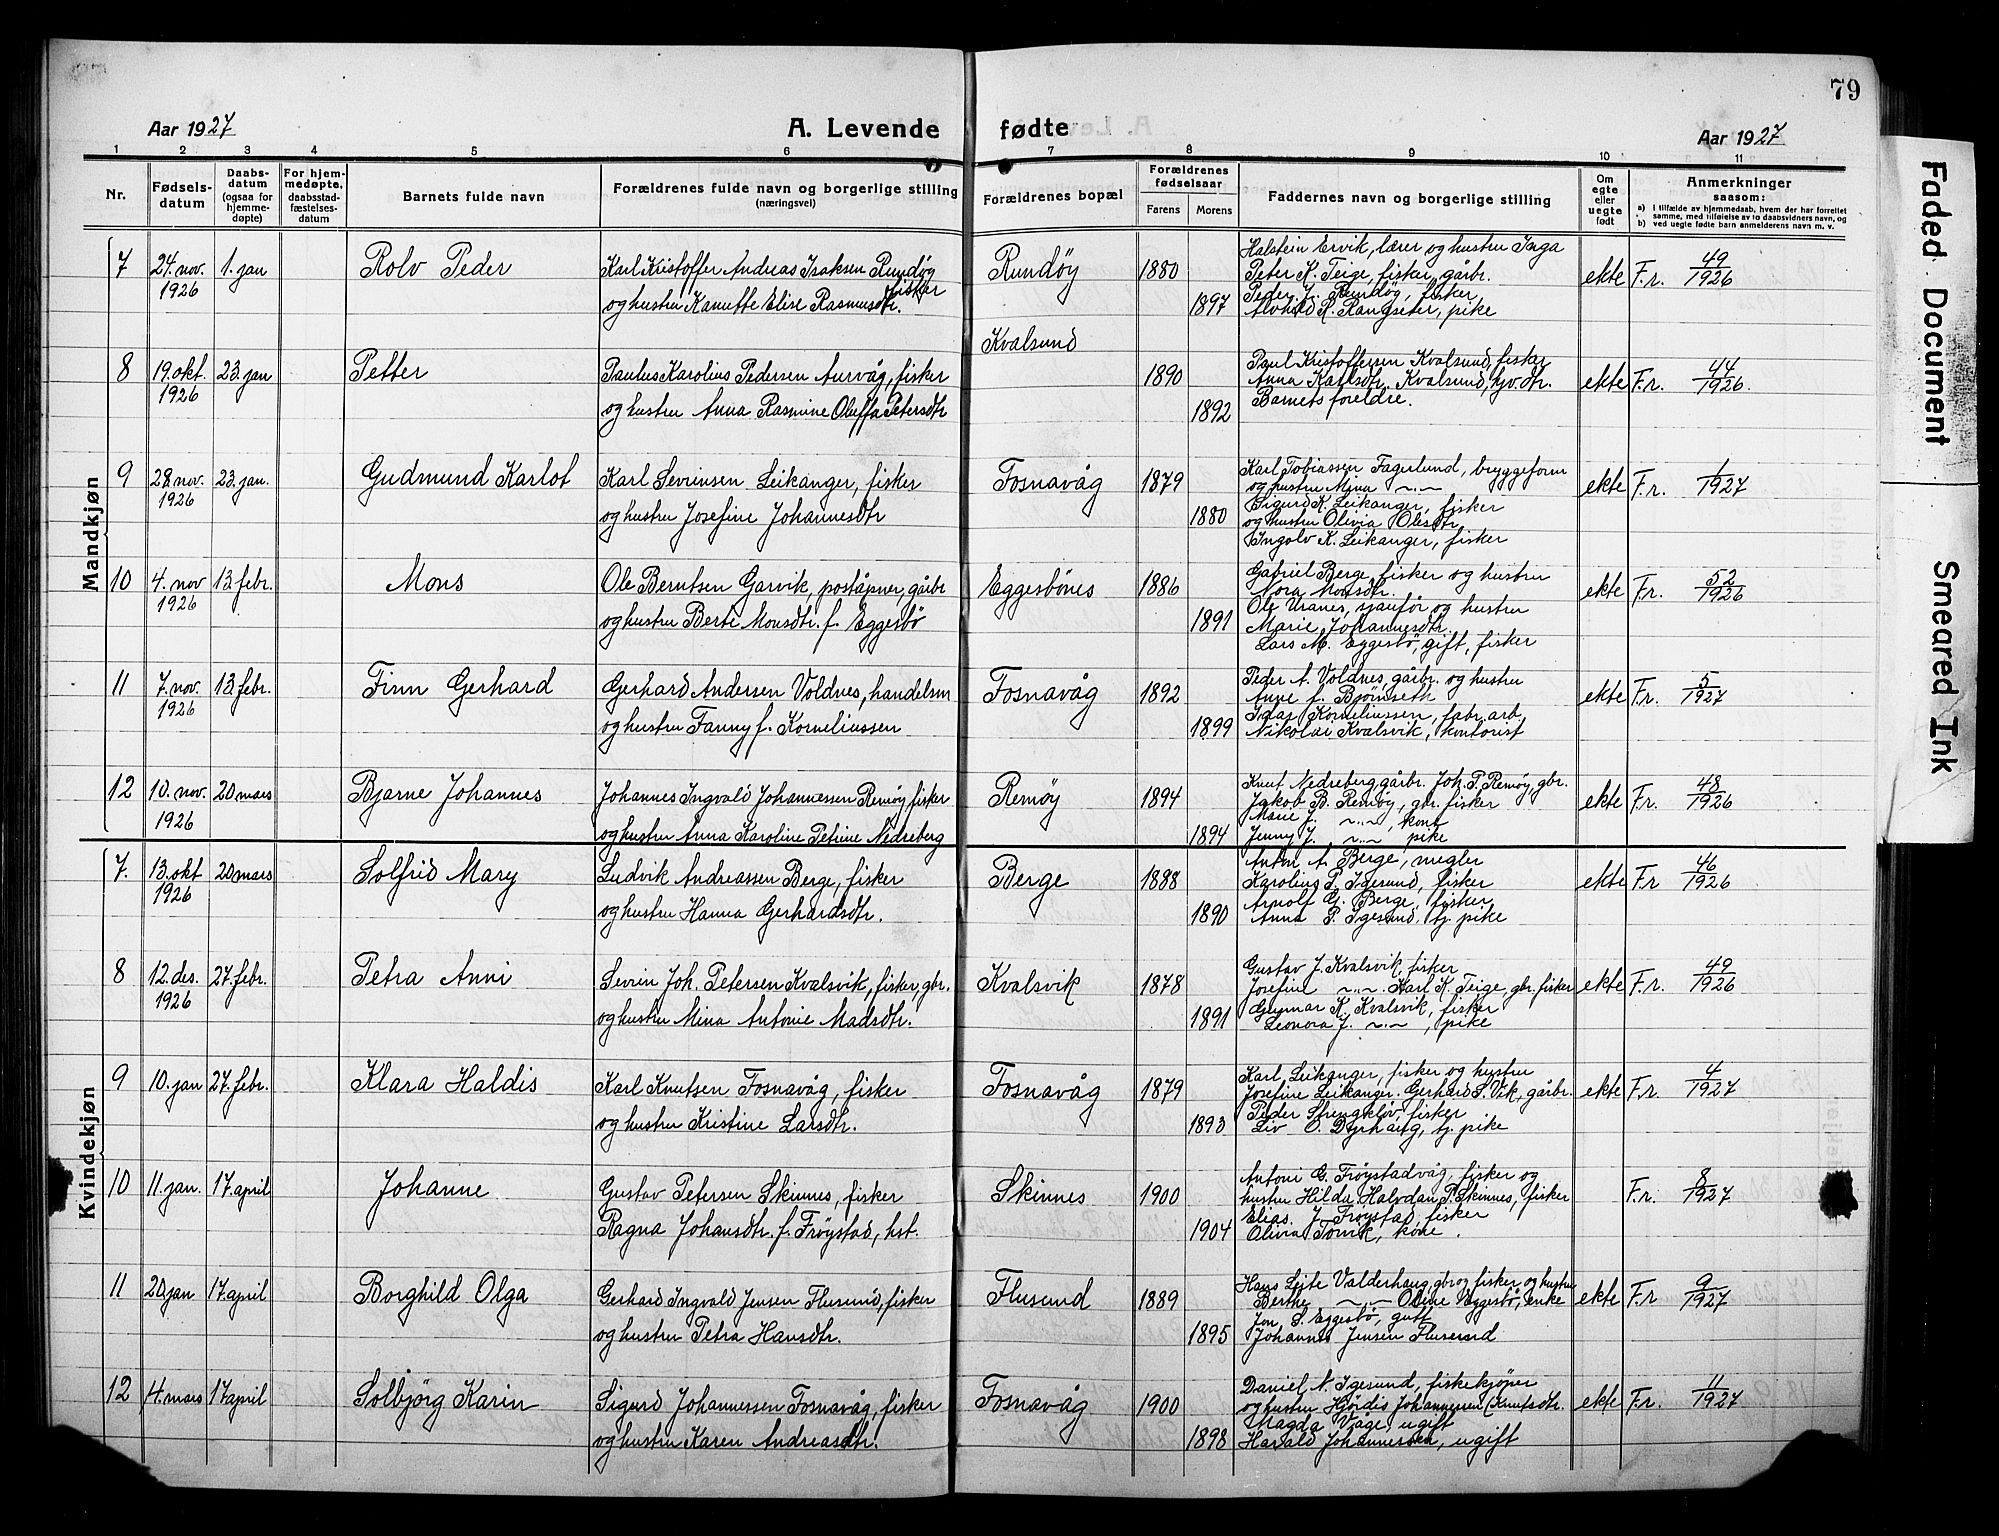 79
Aar 1927
A. Levende fødte
Aar 1927
1 2 3 4 5 6 7 8 9 10 11
Nr.
Fødselsdatum
Daabsdatum (ogsaa for hjemmedøpte)
For hjemmedøpte, daabsstadfæstelsesdatum
Barnets fulde navn
Forældrenes fulde navn og borgerlige stilling (næringsvei)
Forældrenes bopæl
Forældrenes fødselsaar
Farens Morens
Faddernes navn og borgerlige stilling
Om egte eller uegte født
Anmerkninger saasom:
a) i tilfælde av hjemmedaab, hvem der har forrettet samme, med tilføielse av to daabsvidners navn, og
b) ved uegte fødte barn anmelderens navn m. v.
Mandkjøn
7 24. nov. 1926 1. jan Rolv Peder
Karl Kristoffer Andreas Isaksen Rundøy fisker
og hustru Kanutte Elise Rasmusdtr.
Rundøy 1880 1897
Halstein Ervik, lærer og hustru Inga
Peter K. Teige, fisker, gårbr.
Peder J. Rundøy, fisker
R. Rangseter, pike
ekte F.r. 49/1926
8 19. okt. 1926 23. jan Petter
Paulus Karolius Pedersen Aurvåg, fisker
og hustru Anna Rasmine Oluffa Petersdtr
Kvalsund 1890 1892
Paul Kristoffersen Kvalsund, fisker
Anna Karlsdtr. Kvalsund, hjv. dtr.
Barnets foreldre.
ekte F.r. 44/1926.
9 28. nov. 1926 23. jan. Gudmund Karlot
Karl Sevrinsen Leikanger, fisker
og hustru Josefine Johannesdtr
Fosnavåg 1879 1880
Karl Tobiassen Fagerlund, bryggeform
og hustru Mina ~..~
Sigurd K. Leikanger, fisker
og hustru Olivia Olesdtr
Ingolv K. Leikanger, fisker
ekte F.r. 1/1927
10 4. nov 1926 13. febr. Mons
Ole Berntsen Garvik, poståpner, gårbr
og hustru Berte Monsdtr. f. Eggesbø
Eggesbönes 1886 1891
Gabriel Berge, fisker og hustru
Nora Monsdtr.
Ole Uranes, sjaufør og hustru
Marie Johannesdtr.
Lars M. Eggesbö, gift, fisker
ekte F.r. 52/1926
11 7. nov. 1926 13. febr. Finn Gerhard
Gerhard Andersen Voldnes, handelsm
og hustru Fanny f. Korneliussen
Fosnavåg 1892 1899
Peder A. Voldnes, gårbr. og hustru
Anne f. Bjørnseth
Korneliussen, fabr. arb.
Nikolai Kvalsvik, kontorist
ekte F.r. 5/1927
12 10. nov. 1926 20 mars Bjarne Johannes
Johannes Ingvald Johannesen Remøy, fisker
og hustru Anna Karoline Petrine Nedreberg
Remøy 1894 1894
Knut Nedreberg, gårbr. Joh. P. Remøy, gbr.
Jakob B. Remøy, gbr. fisker
Marie J. ~..~, kont
Jenny J. ~..~ pike
ekte F.r. 48/1926
Kvindekjøn
7. 13. okt 1926 20 mars Solfrid Mary
Ludvik Andreassen Berge, fisker
og hustru Hanna Gerhardsdtr.
Berge 1888 1890
Anton A. Berge, megler
Karolius P. Igesund, fisker
Arnolf G. Berge, fisker
Anna P. Igesund, tj. pike
ekte F.r 46/1926
8 12. des. 1926 27. febr. Petra Anni
Sevrin Joh. Petersen Kvalsvik, fisker, gbr.
og hustru Mina Antonie Madsdtr.
Kvalsvik 1878 1891
Gustav J. Kvalsvik, fisker
Josefine ~..~ Karl K. Teige, gbr. fisker
Gunnar K. Kvalsvik, fisker
Leonora J. ~..~, pike
ekte F.r. 49/1926
9 10. jan 27. febr. Klara Haldis
Karl Knutsen Fosnavåg, fisker
og hustru Kristine Larsdtr.
Fosnavåg 1879 1893
Karl Leikanger, fisker og hustru
Josefine Leikanger. Gerhard S. Vik, gårbr.
Peder fisker
Liv O. Dyrhaug, tj. pike
ekte F.r. 4/1927
10 11. jan. 17. april Johanne
Gustav Petersen Skinnes, fisker
Ragna Johansdtr. f. Frøystad, hst.
Skinnes 1900 1904
Antoni G. Frøystadvåg, fisker og
hustru Hilda, Halvdan P. Skinnes, fisker
Elias J. Frøystad, fisker
Olivia kone.
F.r. 8/1927
11 20. jan 17. april Borghild Olga
Gerhard Ingvald Jensen Flusund, fisker
og hustru Petra Hansdtr.
Flusund 1889 1895
Hans Leite Valderhaug, gbr og fisker og hustru
Berthe ~..~ Oline Eggesbö, enke
Jon S. Eggesbö, gutt
Johannes Jensen Flusund
ekte F.r 9/1927
12 4. mars 17 april Solbjörg Karin
Sigurd Johannessen Fosnavåg, fisker
og hustru Karen Andreasdtr.
Fosnavåg 1900 1898
Daniel N. Igesund, fiskekjøper
og hustru Hjördis Johannessen (Knutsdtr.
Magda Våge, ugift
Harald Johannessen, ugift
ekte F.r. 11/1927
Faded Document
Smeared Ink